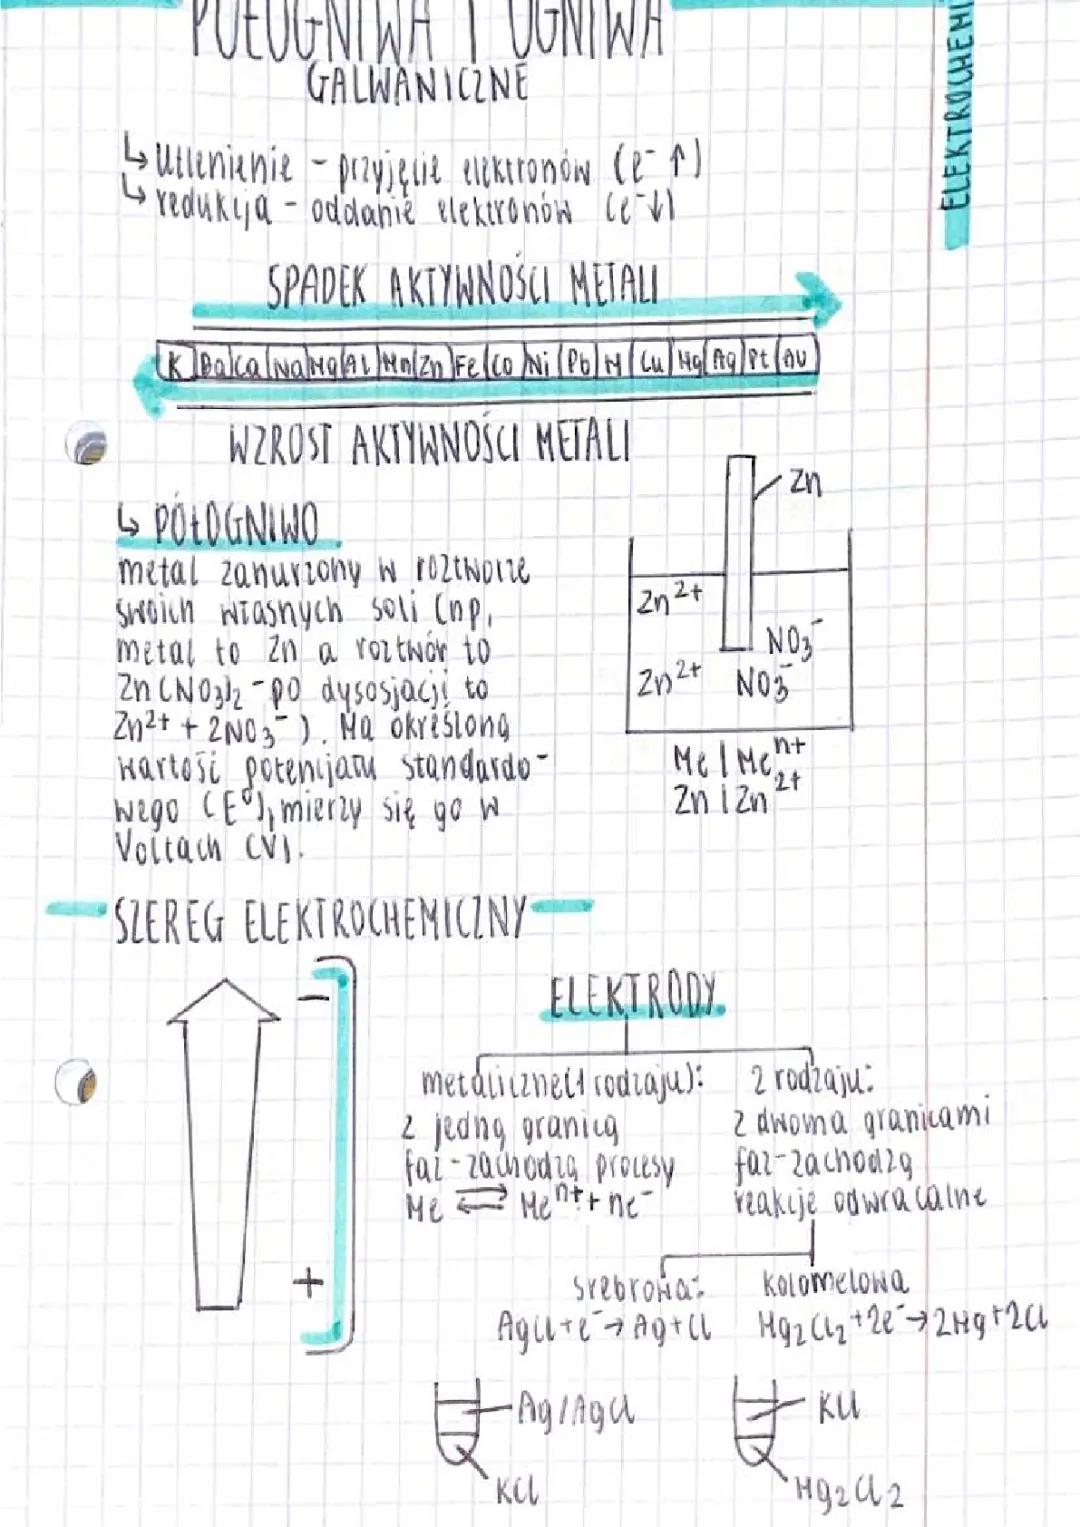 PÓŁOGNIWA I OGNIWA
GALWANICZNE
ELEKTROCHEMI
↳ Utlenienie - przyjęcie elektronów (e⁻ ↑)
↳ redukcja - oddanie elektronów (e⁻↓)
SPADEK AKTYWNOŚCI METALI
K Ba Ca Na Mg Al Mn Zn Fe Co Ni Pb H Cu Hg Ag Pt Au
WZROST AKTYWNOŚCI METALI
↳ PÓŁOGNIWO
metal zanurzony w roztworze
swoich własnych soli (np.
metal to Zn a roztwór to
Zn(NO₃)₂ - po dysosjacji to
Zn²⁺ + 2NO₃⁻). Ma określoną
wartość potencjału standardo-
wego (E⁰), mierzy się go w
Voltach (V).
Zn
Zn²⁺
NO₃⁻
Zn²⁺ NO₃⁻
Me | Meⁿ⁺
Zn | Zn²⁺
SZEREG ELEKTROCHEMICZNY
−
+
ELEKTRODY
metaliczne (1 rodzaju):
z jedną granicą
faz - zachodzą procesy
Me ⇌ Meⁿ⁺ + ne⁻
2 rodzaju:
z dwoma granicami
faz - zachodzą
reakcje odwracalne
srebrowa:
AgCl + e⁻ → Ag + Cl
Kolomelowa
Hg₂Cl₂ + 2e⁻ → 2Hg + 2Cl
Ag/AgCl
KCl
KCl
Hg₂Cl₂